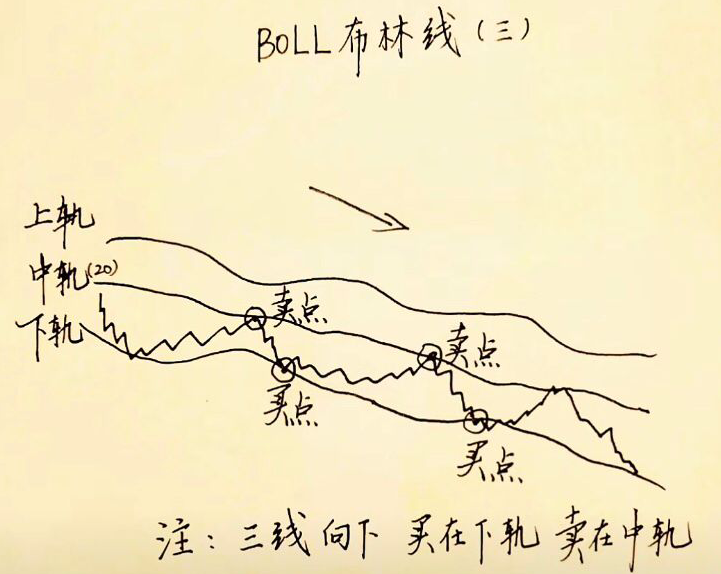 BOLL布林线(三)
上轨
中轨(20)
下轨
卖点
卖点
买点
买点
注：三线向下 买在下轨 卖在中轨